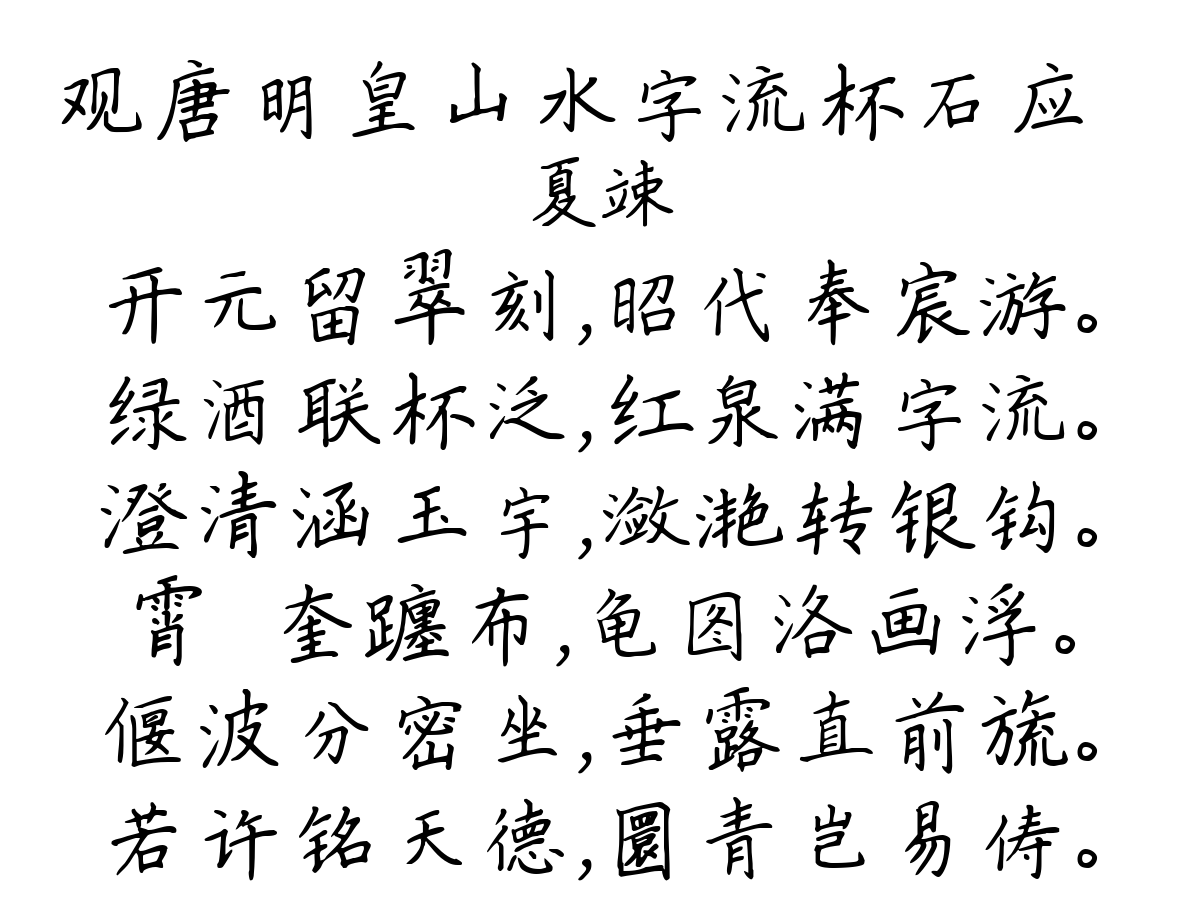 观唐明皇山水字流杯石应
夏竦
开元留翠刻,昭代奉宸游。
绿酒联杯泛,红泉满字流。
澄清涵玉宇,潋滟转银钩。
霄 奎躔布,龟图洛画浮。
偃波分密坐,垂露直前旒。
若许铭天德,圜青岂易俦。